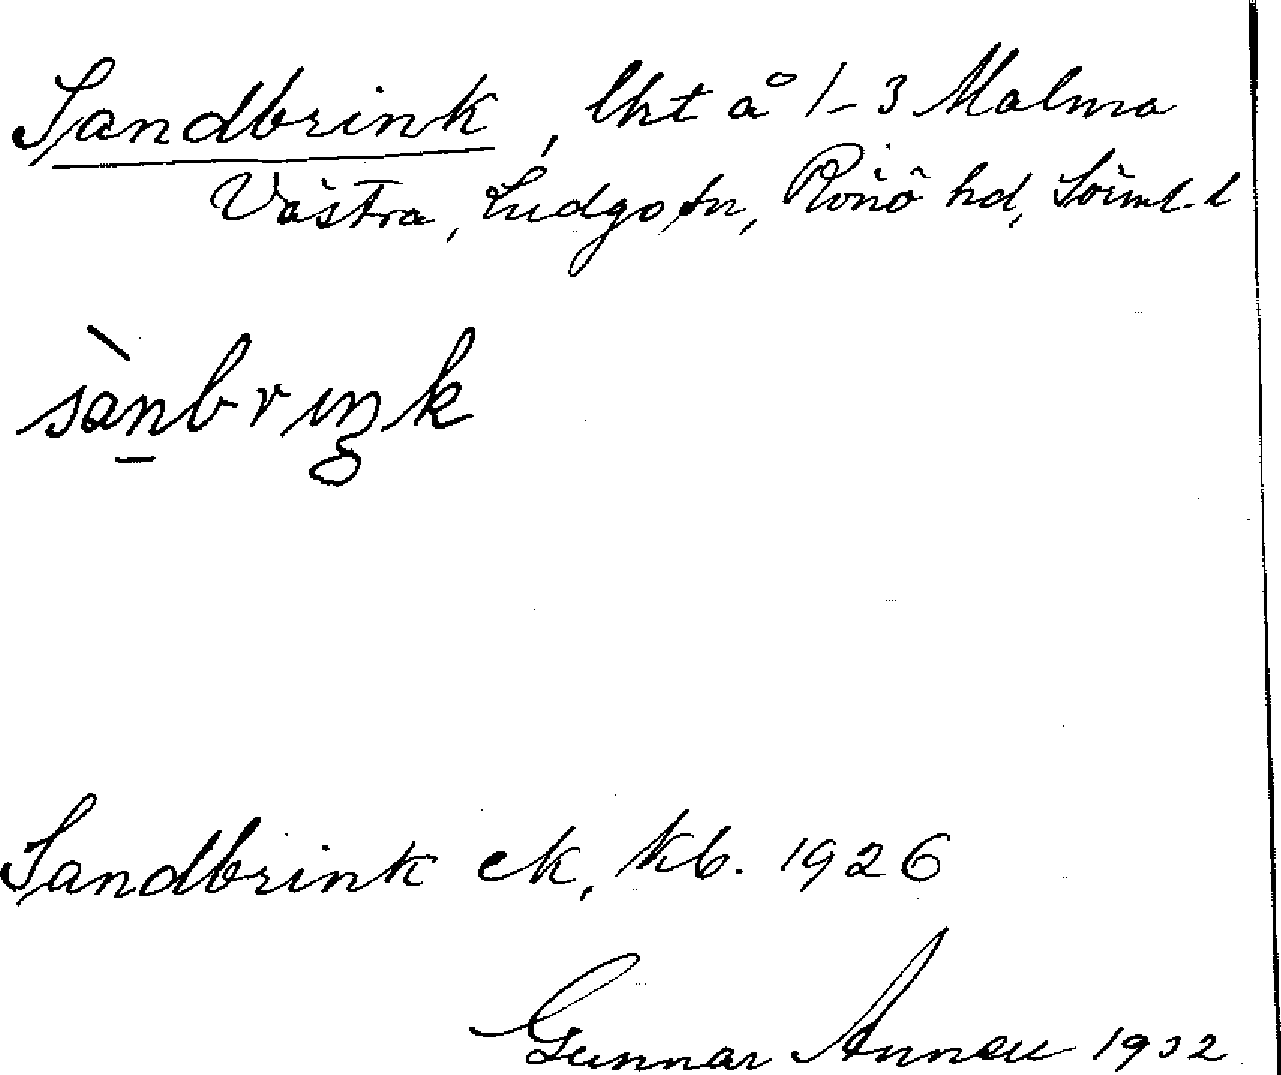 Sandbrink, lht å 1-3 Malma
Västra, Ludgo sn, Rönö hd, Söiml. l
sànbrıŋk
Sandbrink ek, kb. 1926
Gunnar 1932